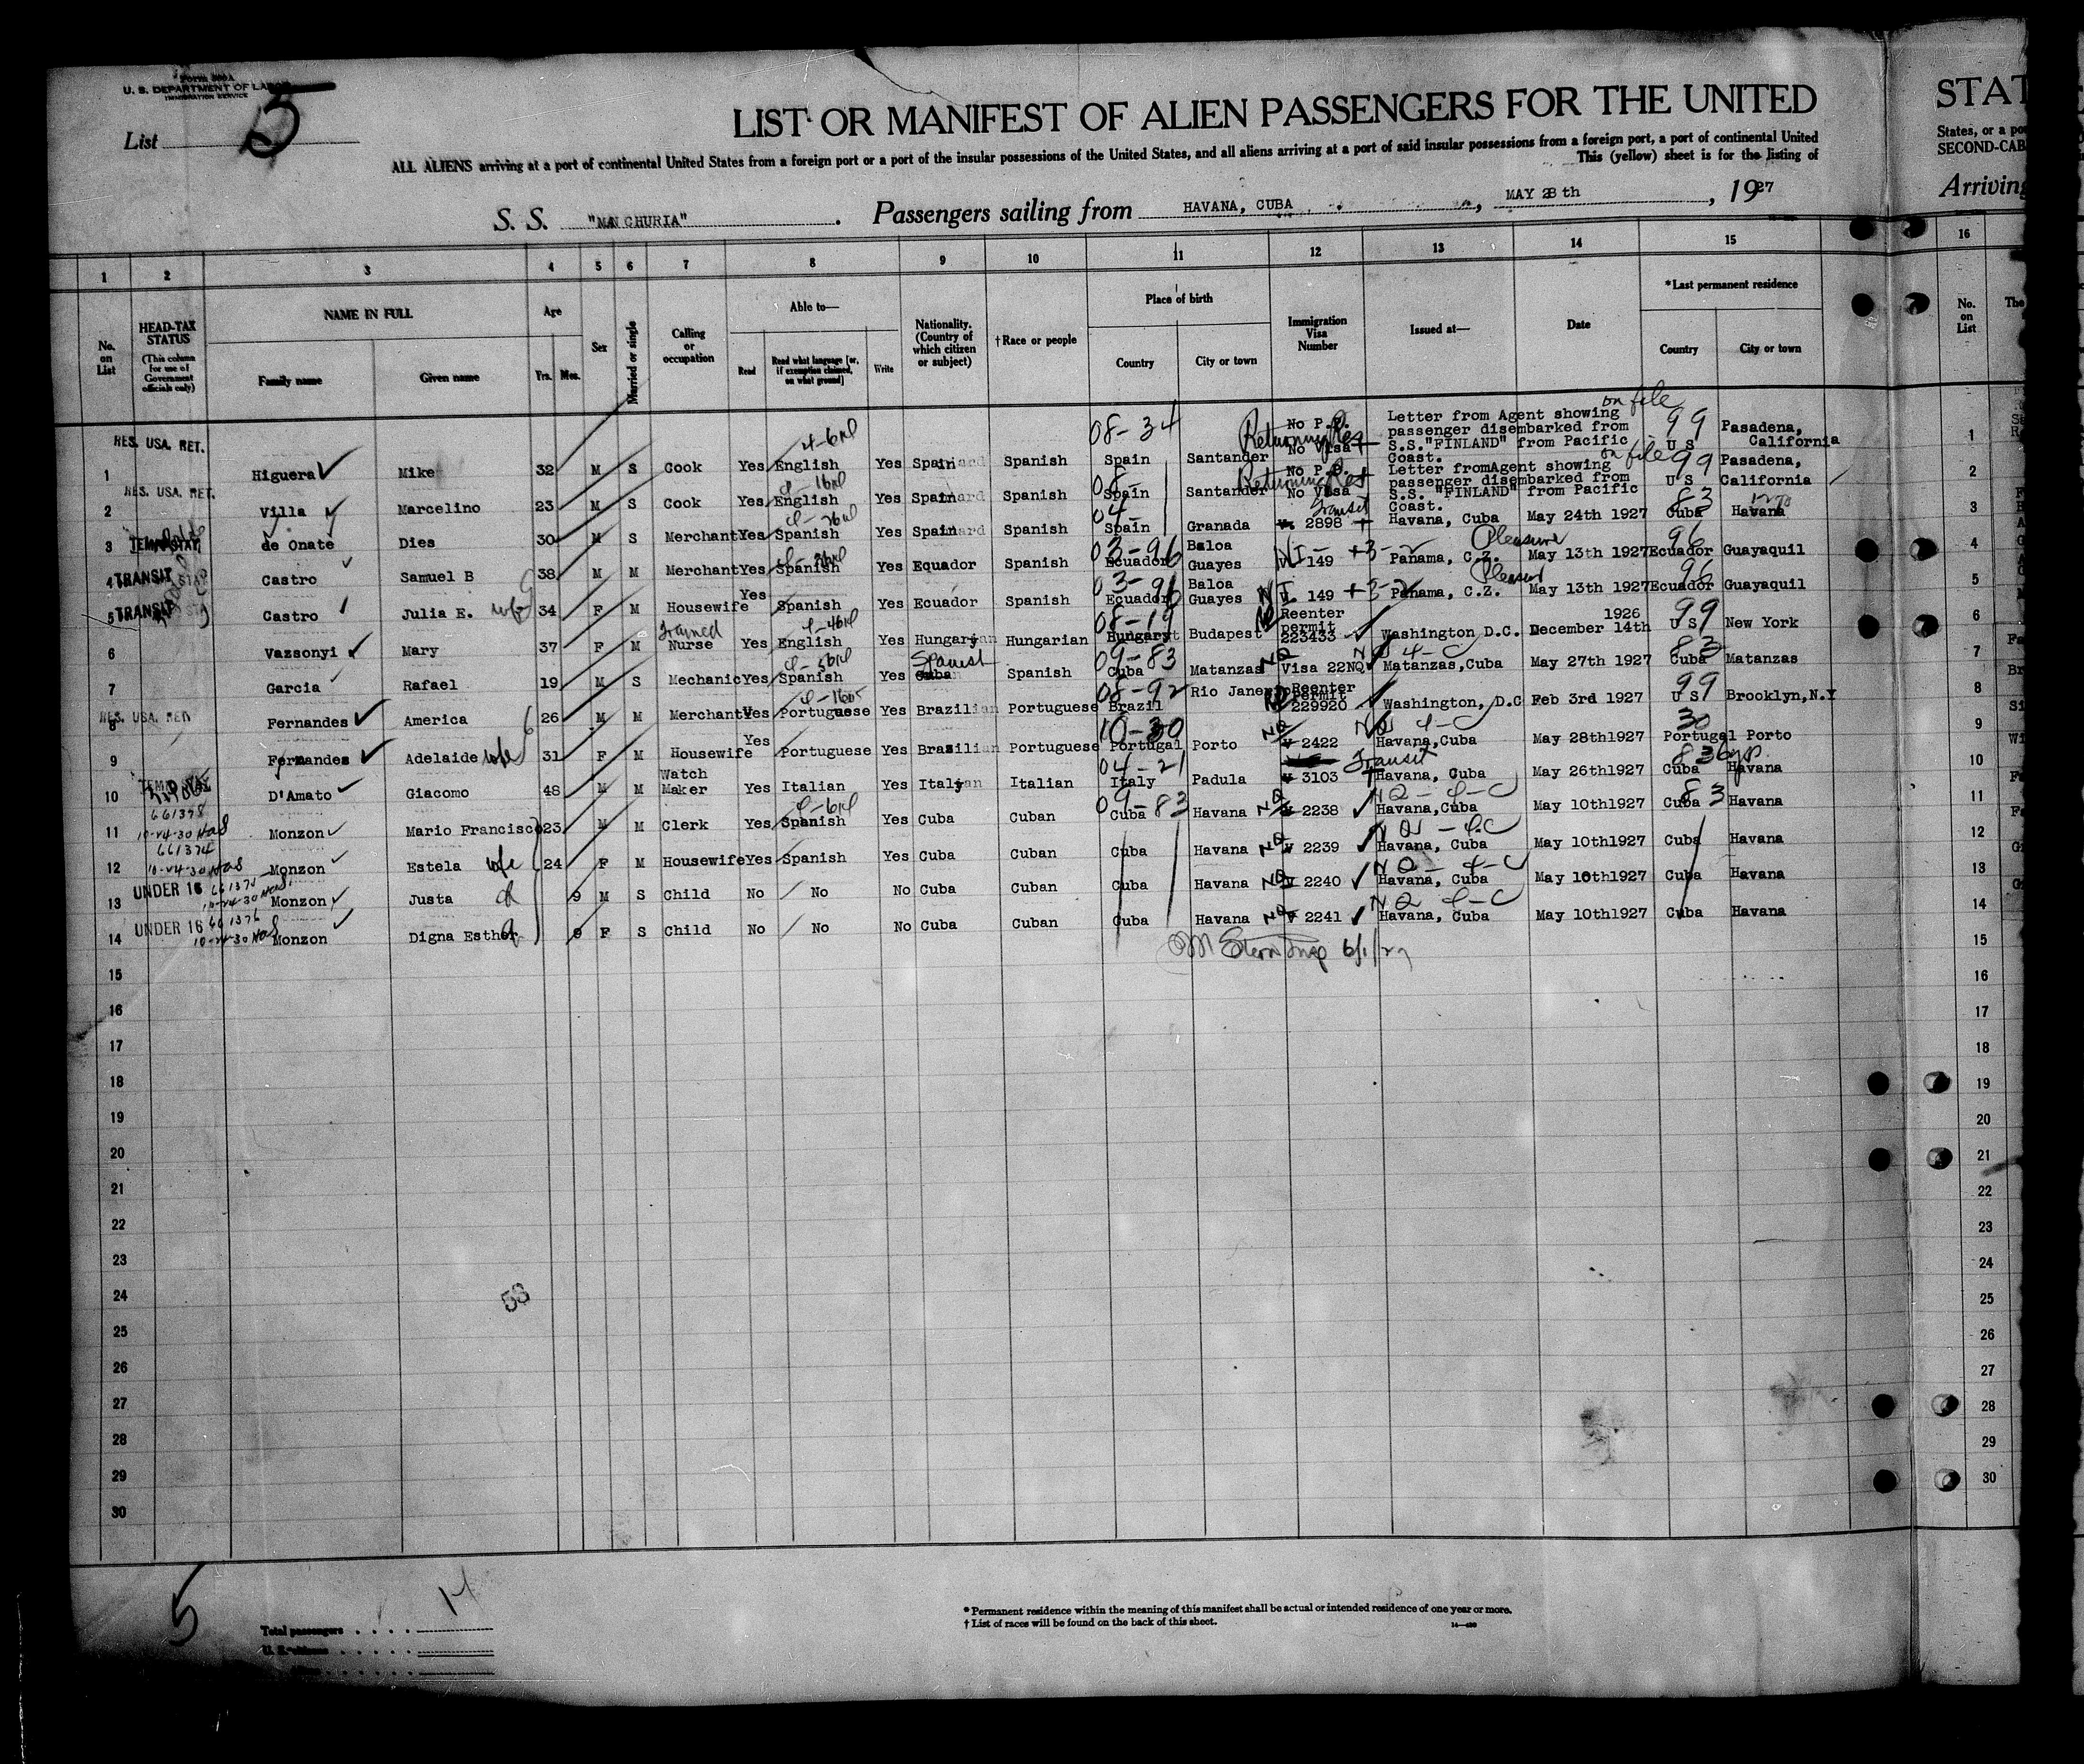 Form 500A
U. S. DEPARTMENT OF LABOR
IMMIGRATION SERVICE
List 5
LIST OR MANIFEST OF ALIEN PASSENGERS FOR THE UNITED
ALL ALIENS arriving at a port of continental United States from a foreign port or a port of the insular possessions of the United States, and all aliens arriving at a port of said insular possessions from a foreign port, a port of continental United
This (yellow) sheet is for the listing of
S. S. "MANCHURIA". Passengers sailing from HAVANA, CUBA, MAY 28 th, 1927
STAT
States, or a po
SECOND-CAB
Arriving
1 2 3 4 5 6 7 8 9 10 11 12 13 14 15 16
No. on List
HEAD-TAX STATUS (This column for use of Government officials only)
NAME IN FULL Family name Given name
Age Yrs. Mos.
Sex
Married or single
Calling or occupation
Able to— Read Read what language [or, if exemption claimed, on what ground] Write
Nationality. (Country of which citizen or subject)
†Race or people
Place of birth Country City or town
Immigration Visa Number
Issued at—
Date
*Last permanent residence Country City or town
No. on List The
RES. USA. RET. 1 Higuera Mike 32 M S Cook Yes English Yes Spain Spanish 08-34 Spain Santander No P.P. No Visa Returning Res Letter from Agent showing passenger disembarked from S.S."FINLAND" from Pacific Coast. on file 99 U S Pasadena, California
RES. USA. RET. 2 Villa Marcelino 23 M S Cook Yes English Yes Spain Spanish 08- Spain Santander No P.P. No Visa Returning Res Letter fromAgent showing passenger disembarked from S.S. "FINLAND" from Pacific Coast. on file 99 U S Pasadena, California
3 TEMP STAY de Onate Dies 30 M S Merchant Yes Spanish Yes Spain Spanish 04- Spain Granada Transit 2898 Havana, Cuba May 24th 1927 83 Cuba Havana
4 TRANSIT Castro Samuel B 38 M M Merchant Yes Spanish Yes Ecuador Spanish 03-96 Ecuador Baloa Guayes 149 Pleasure Panama, C.Z. May 13th 1927 96 Ecuador Guayaquil
5 TRANSIT Castro Julia E. wife 34 F M Housewife Yes Spanish Yes Ecuador Spanish 03-96 Ecuador Baloa Guayes 149 Pleasure Panama, C.Z. May 13th 1927 96 Ecuador Guayaquil
6 Vazsonyi Mary 37 F M Trained Nurse Yes English Yes Hungary Hungarian 08-19 Hungary Budapest Reenter permit 223433 Washington D.C. December 14th 1926 99 U S New York
7 Garcia Rafael 19 M S Mechanic Yes Spanish Yes Cuba Spanish Spanish 09-83 Cuba Matanzas Visa 22NQ Matanzas,Cuba May 27th 1927 83 Cuba Matanzas
RES. USA. RET. 8 Fernandes America 26 M M Merchant Yes Portuguese Yes Brazilian Portuguese 08-92 Brazil Rio Janero Reenter Permit 229920 Washington, D.C Feb 3rd 1927 99 U S Brooklyn,N.Y
9 Fernandes Adelaide wife 31 F M Housewife Yes Portuguese Yes Brasilian Portuguese 10-30 Portugal Porto NQ 2422 NQ 4-C Havana,Cuba May 28th1927 30 Portugal Porto
10 D'Amato Giacomo 48 M M Watch Maker Yes Italian Yes Italy Italian 04-21 Italy Padula 3103 Transit Havana, Cuba May 26th1927 83 Cuba Havana
661378 10-24-30 11 Monzon Mario Francisco 23 M M Clerk Yes Spanish Yes Cuba Cuban 09-83 Cuba Havana NQ 2238 NQ-4-C Havana,Cuba May 10th1927 83 Cuba Havana
661374 10-24-30 12 Monzon Estela wife 24 F M Housewife Yes Spanish Yes Cuba Cuban Cuba Havana NQ 2239 NQ-4-C Havana, Cuba May 10th1927 Cuba Havana
UNDER 16 661375 10-24-30 13 Monzon Justa 9 M S Child No No No Cuba Cuban Cuba Havana NQ 2240 NQ-4-C Havana, Cuba May 10th1927 Cuba Havana
UNDER 16 661376 10-24-30 14 Monzon Digna Esther 9 F S Child No No No Cuba Cuban Cuba Havana NQ 2241 NQ-4-C Havana, Cuba May 10th1927 Cuba Havana
15
16
17
18
19
20
21
22
23
24
25
26
27
28
29
30
56
5
14
Total passengers
* Permanent residence within the meaning of this manifest shall be actual or intended residence of one year or more.
† List of races will be found on the back of this sheet.